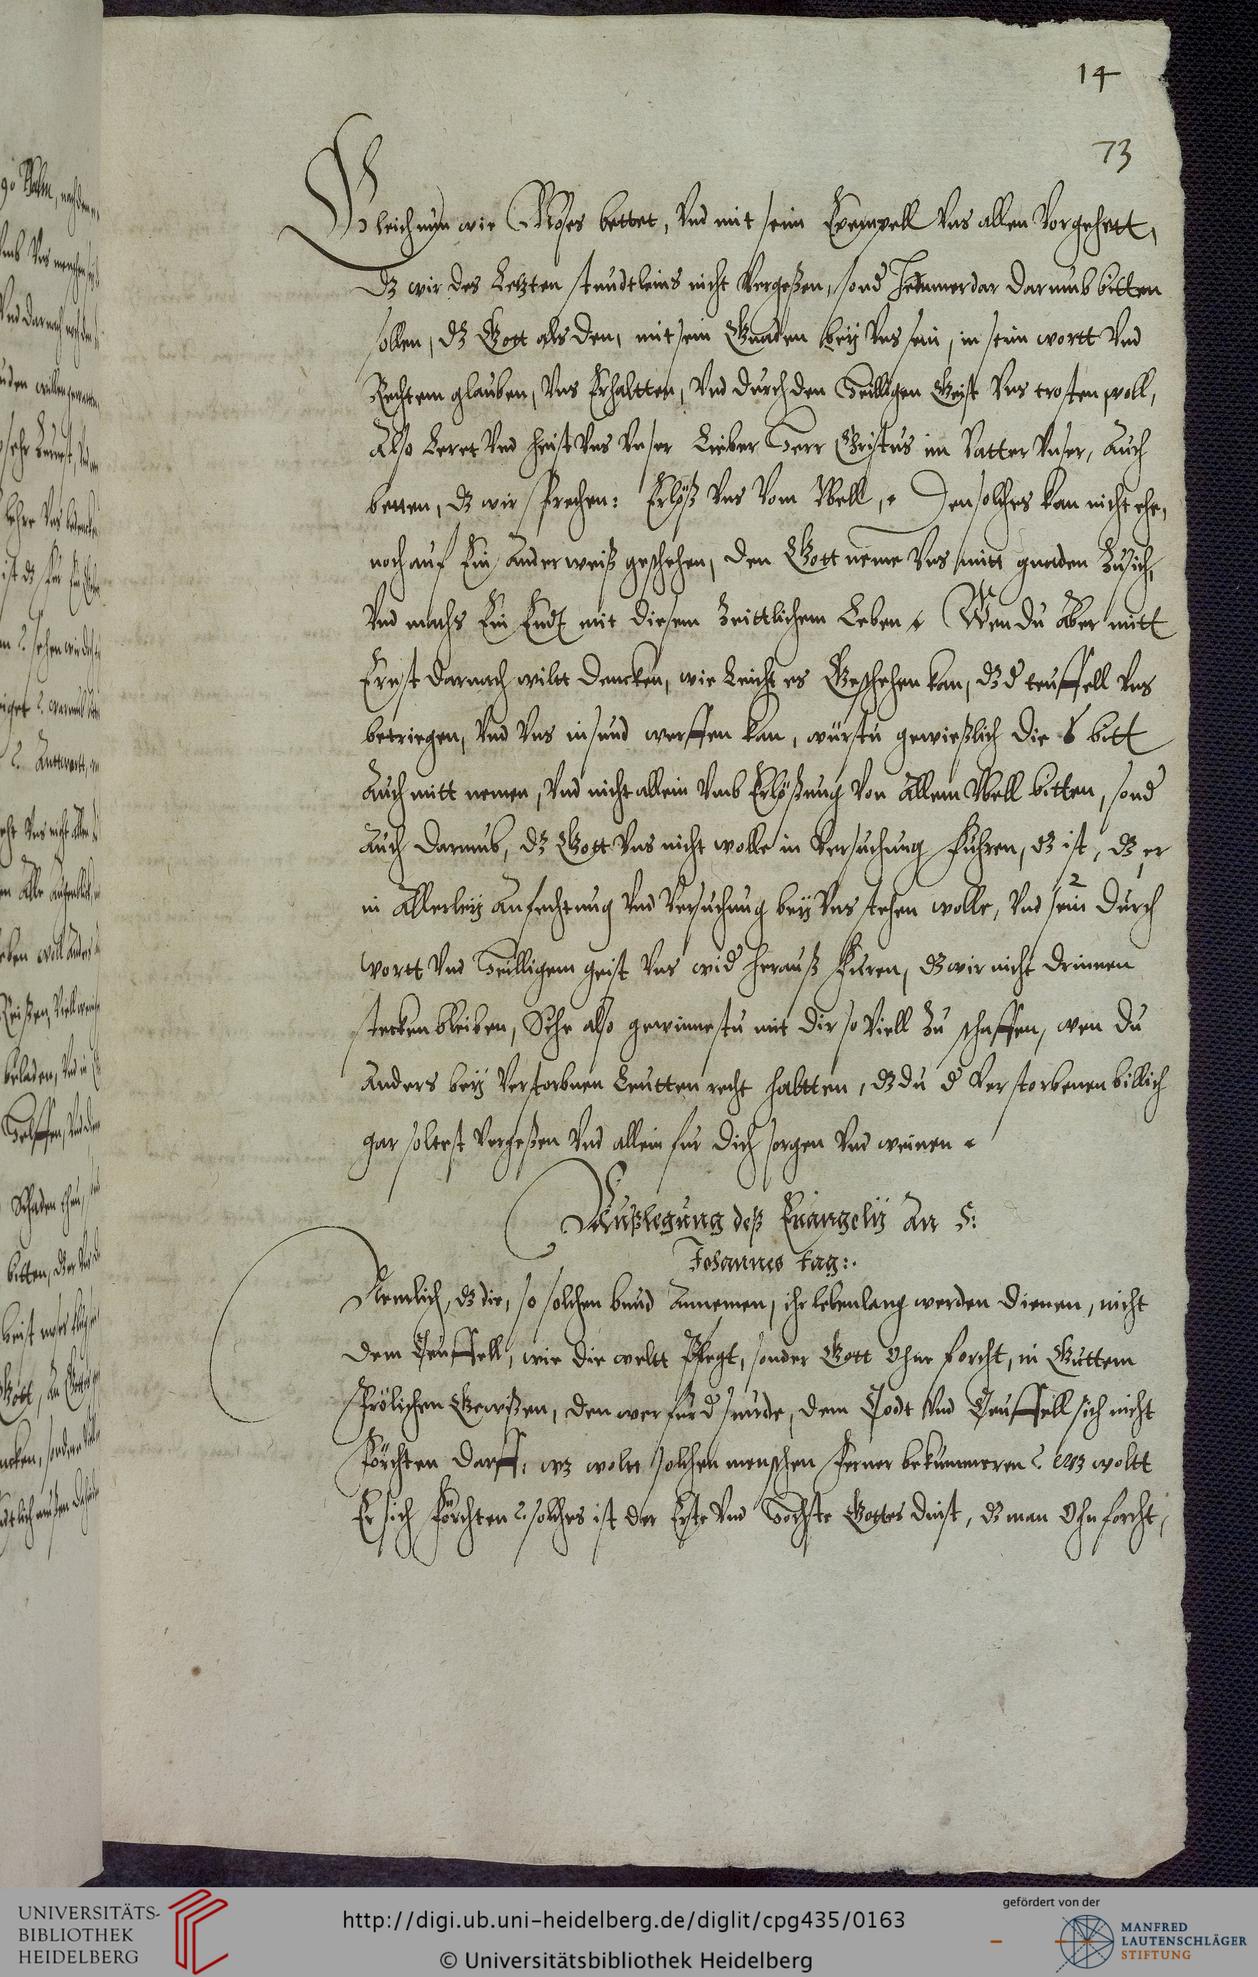 14
73
Gleich nun wie Moses bettet, Vnd mit seim Exempell Vns allen Vorgehett,
dz wir des Letzten stundtleins nicht Vergeßen, sond Immerdar darumb bitten
sollen, dz Gott als den, mit sein Gnaden bey Vns sein, in seim wortt Vnd
Rechtem glauben, Vns Erhaltten, Vnd durch den Heilligen Geist Vns trosten woll,
Also Leret Vnd heist Vns Vnser Lieber Herr Christus im Vatter Vnser, Auch
betten, dz wir sprechen: Erlöß Vns Vom Vbell, Den solches kan nicht ehe,
noch auf Ein Ander weiß geschehen, den Gott neme Vns mitt gnaden Zu sich,
Vnd machs Ein Endt mit diesem Zeittlichem Leben. Wen du Aber mitt
Ernst darnach wiltt dencken, wie Leicht es Geschehen kan, dz d teuffell Vns
betriegen, Vnd Vns in sund werffen kan, würstu gewießlich die 6 bitt
Auch mitt nemen, Vnd nicht allein Vmb Erlößung Von Allem Vbell bitten, sond
Auch darumb, dz Gott Vns nicht wolle in Versuchung Fuhren, dz ist, dz er
in Allerley Anfechtung Vnd Versuchung bey Vns stehen wolle, Vnd sein durch
2 1
wortt Vnd Heilligem geist Vns wid herauß Furen, dz wir nicht drinnen
stecken bleiben, Sihe also gewinnestu mit dir so Viell Zu schaffen, wen du
Anders bey Verstorbnen Leutten recht haltten, dz du d Verstorbenen billich
gar soltest Vergeßen Vnd allein fur dich sorgen Vnd weinen.
Außlegung deß Euangelij An S:
Johannes tag:.
Nemlich, dz die, so solchen bund Annemen, ihr lebenlang werden dienen, nicht
dem Teuffell, wie die weltt Pflegt, sonder Gott Ohne forcht, in Guttem
Frölichen Gewißen, den wer fur d sunde, dem Todt Vnd Teuffell sich nicht
Förchten darff, wz wolt solchen menschen Ferner bekummeren? wz woltt
Er sich Förchten? solches ist der Erste Vnd Hochste Gottes dinst, dz man Ohn forcht,
UNIVERSITÄTS-
BIBLIOTHEK
HEIDELBERG
http://digi.ub.uni-heidelberg.de/diglit/cpg435/0163
© Universitätsbibliothek Heidelberg
gefördert von der
MANFRED
LAUTENSCHLÄGER
STIFTUNG